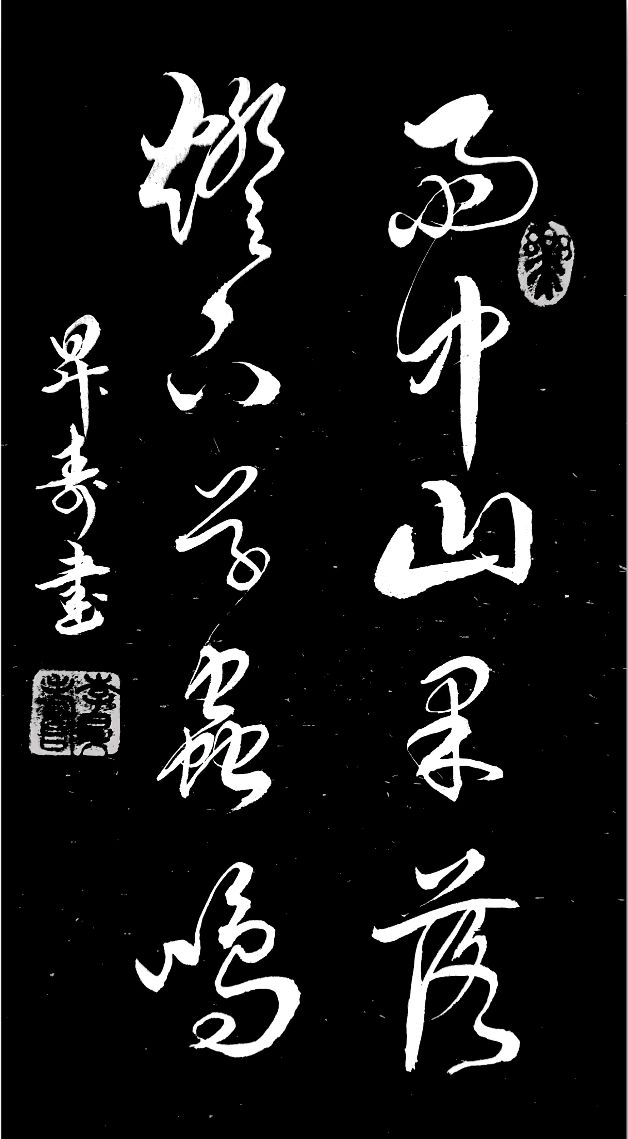 雨中山果落
燈下草蟲鳴
昇壽書